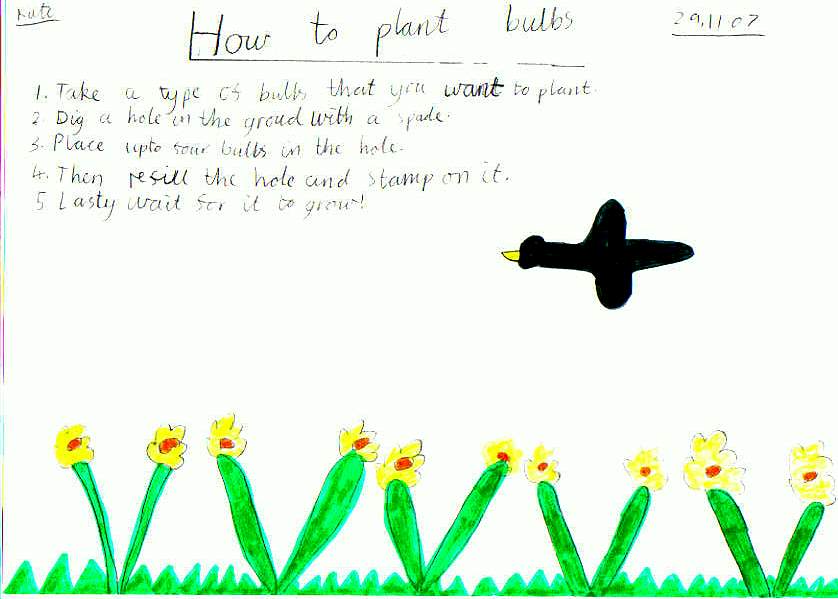 Kate
How to plant bulbs
29.11.07
1. Take a type of bulb that you want to plant.
2. Dig a hole in the groud with a spade.
3. Place upto four bulbs in the hole.
4. Then refill the hole and stamp on it.
5 Lasty wait for it to grow!